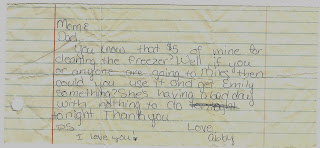 Mom &
Dad,
You know that $5 of mine for
cleaning the freezer? Well if you
or anyone are going to Miks, then
could you use it and get Emily
something? She's having a bad day
with nothing to do to night
tonight. Thank you
Love
P.S. Abby
I love you ♥